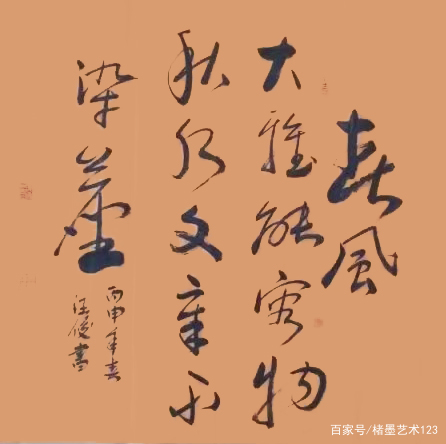 春風
大雅能容物
秋水文章不
染塵
丙申年春
汪俊書
百家号/楮墨艺术123